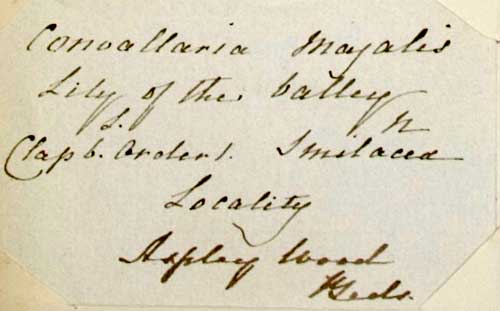 Convallaria Majalis
Lily of the valley
L. N
Class 6. Order 1. Smilaceæ
Locality
Aspley Wood
Beds.